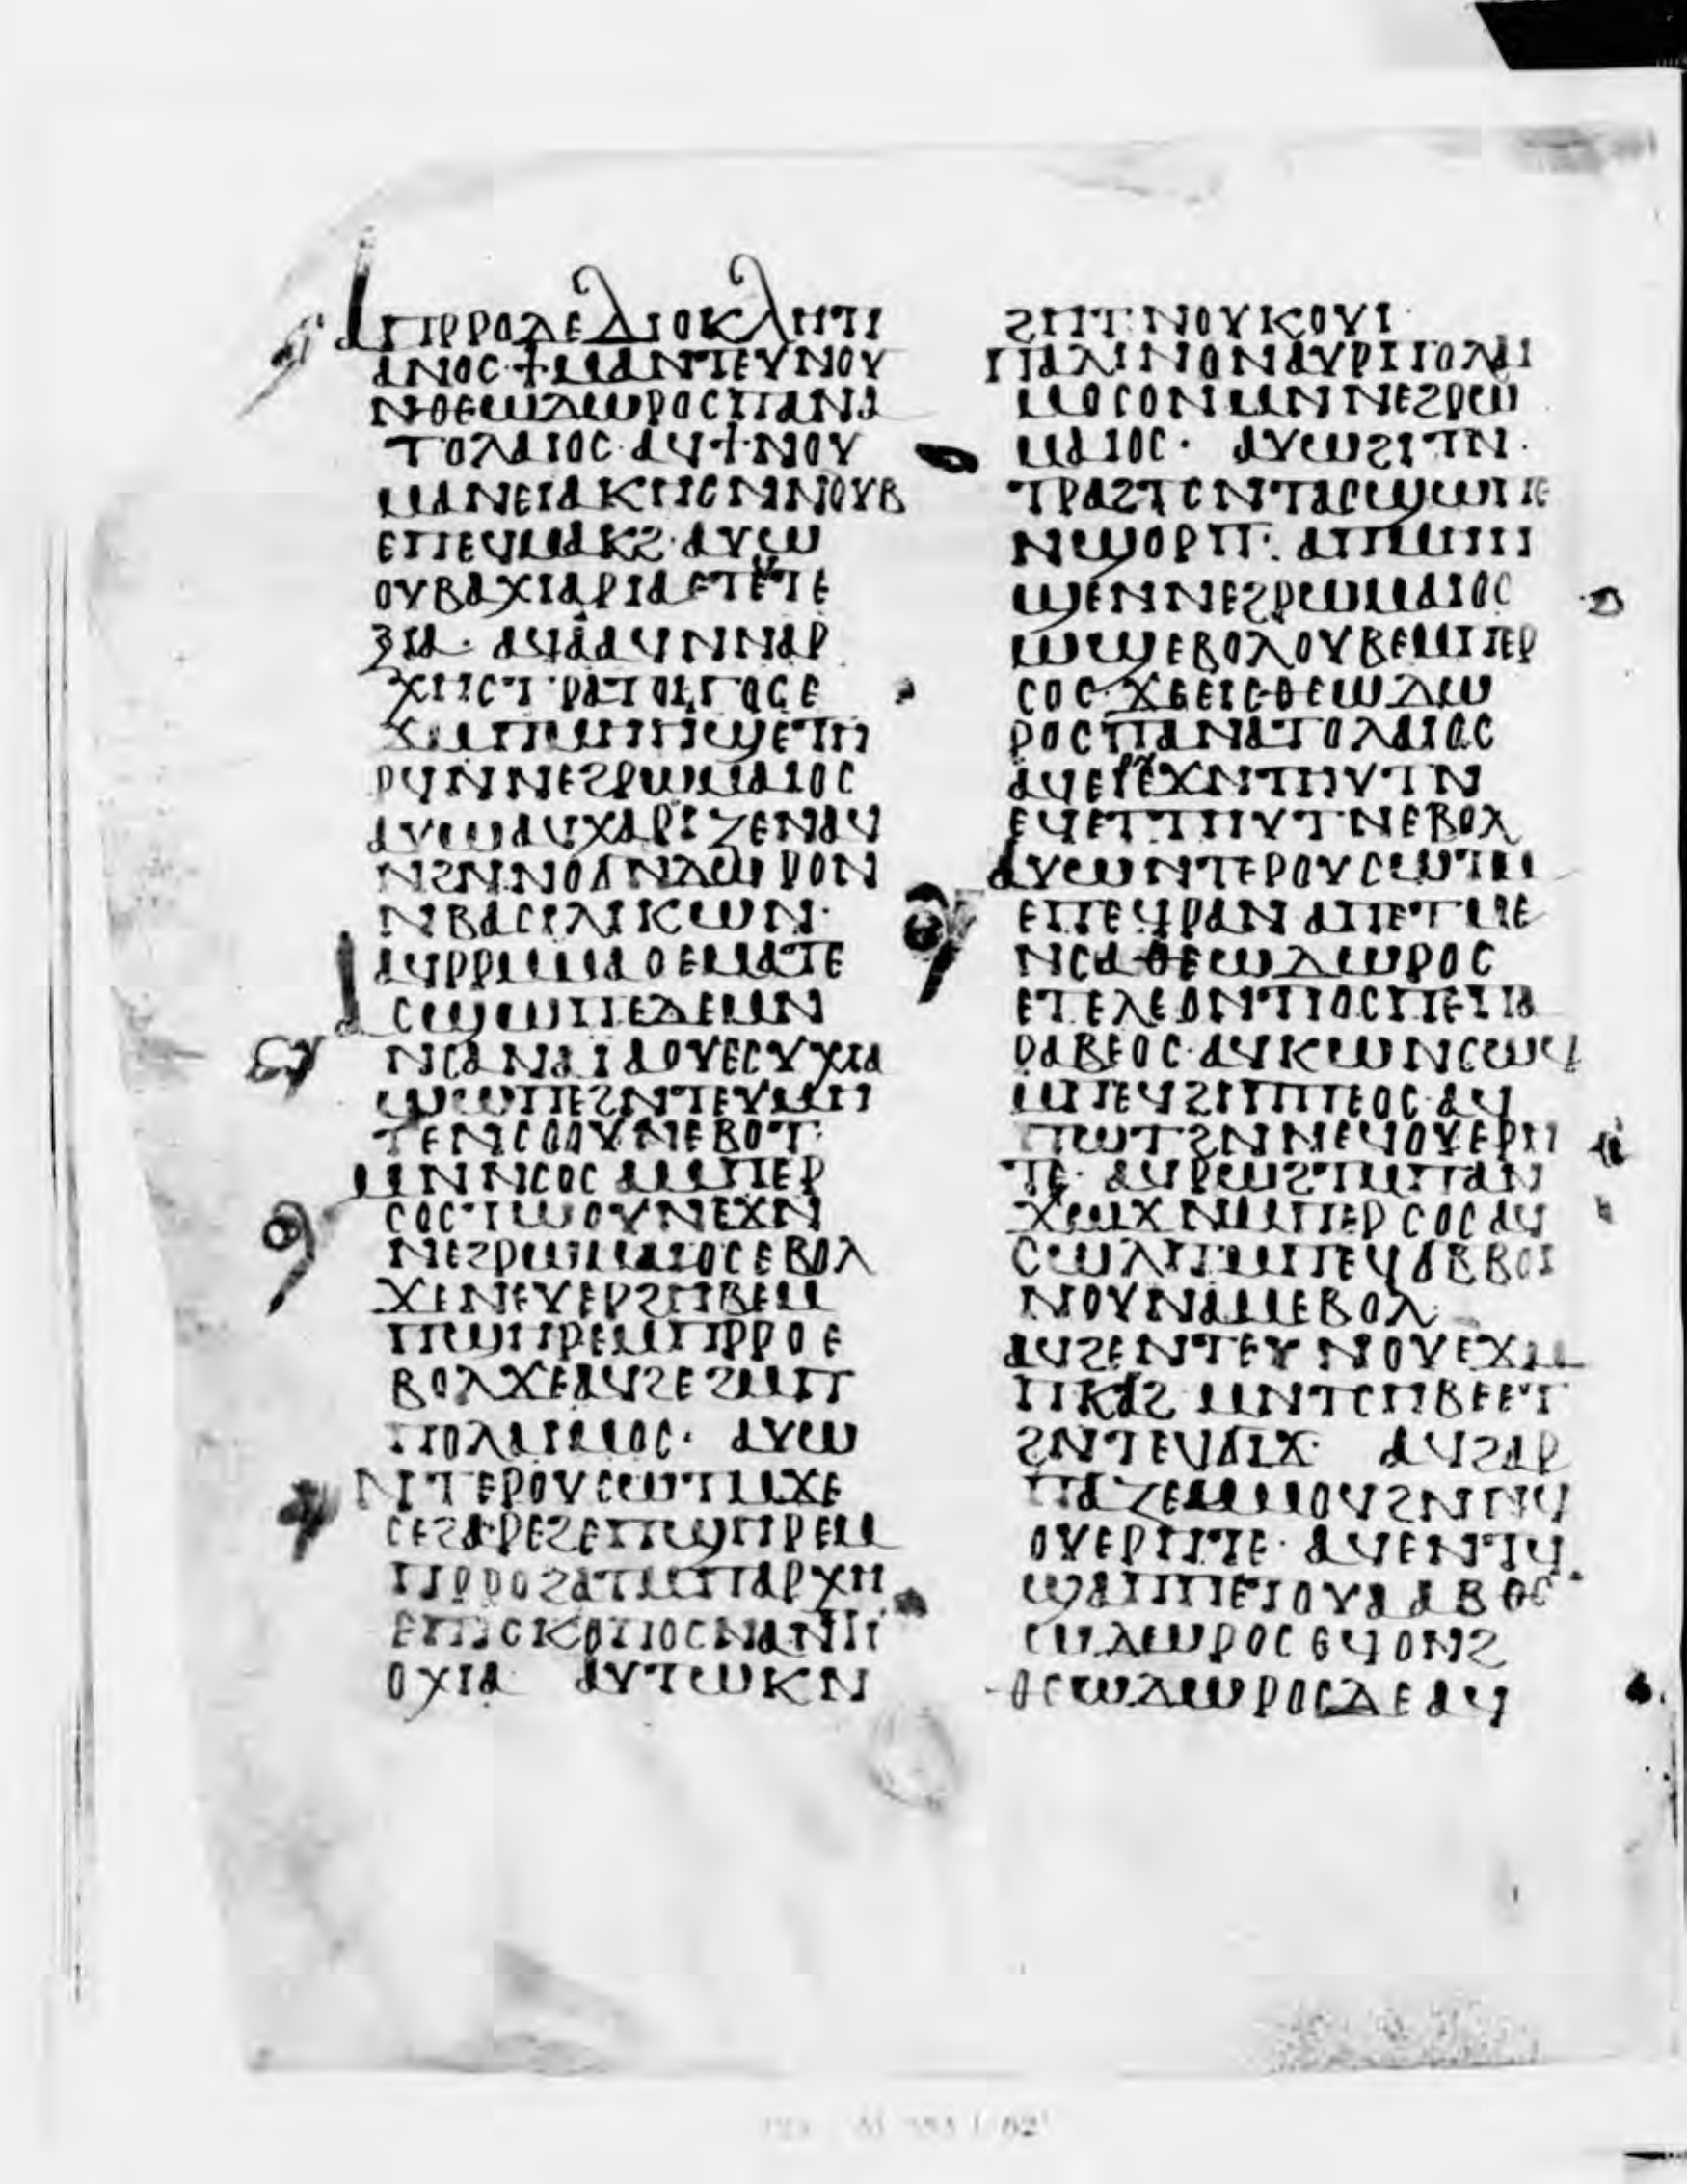 ⲁⲡⲣⲣⲟⲇⲉⲇⲓⲟⲕⲗⲏⲧⲓ
ⲁⲛⲟⲥ·ϯⲙⲁⲛⲧⲉⲩⲛⲟⲩ
ⲛⲑⲉⲱⲇⲱⲣⲟⲥⲡⲁⲛⲁ
ⲧⲟⲗⲁⲓⲟⲥ·ⲁϥϯⲛⲟⲩ
ⲙⲁⲛⲉⲓⲁⲕⲏⲥⲛⲛⲟⲩⲃ
ⲉⲡⲉϥⲙⲁⲕϩ·ⲁⲩⲱ
ⲟⲩⲃⲁⲭⲓⲁⲣⲓⲁⲉⲧⲉⲧⲉ
ⲝⲓⲁ·ⲁϥⲁⲁϥⲛⲛⲁⲣ
ⲭⲏⲥⲧⲣⲁⲧⲟⲓⲅⲟⲥⲉ
ϫⲙⲡⲙⲏⲏϣⲉⲧⲏ
ⲣϥⲛⲛⲉϩⲣⲱⲙⲁⲓⲟⲥ
ⲁⲩⲱⲁϥⲭⲁⲣⲓⲍⲉⲛⲁϥ
ⲛϩⲛⲛⲟϭⲛⲇⲱⲣⲟⲛ
ⲛⲃⲁⲥⲓⲗⲓⲕⲱⲛ·
ⲁϥⲣⲣⲙⲙⲁⲟⲉⲙⲁⲧⲉ
ⲁⲥϣⲱⲡⲉⲇⲉⲙⲛ
ⲛⲥⲁⲛⲁⲓⲁⲟⲩⲉⲥⲩⲭⲓⲁ
ϣⲱⲡⲉϩⲛⲧⲉⲩⲙⲏ
ⲧⲉⲛⲥⲟⲟⲩⲛⲉⲃⲟⲧ·
ⲙⲛⲛⲥⲱⲥⲁⲙⲡⲉⲣ
ⲥⲟⲥⲧⲱⲟⲩⲛⲉϫⲛ
ⲛⲉϩⲣⲱⲙⲁⲓⲟⲥⲉⲃⲟⲗ
ϫⲉⲛⲉⲩⲉⲣϩⲏⲃⲉⲙ
ⲡϣⲏⲣⲉⲙⲡⲣⲣⲟⲉ
ⲃⲟⲗϫⲉⲁϥϩⲉϩⲙⲡ
ⲡⲟⲗⲉⲙⲟⲥ·ⲁⲩⲱ
ⲛⲧⲉⲣⲟⲩⲥⲱⲧⲙϫⲉ
ⲥⲉϩⲁⲣⲉϩⲉⲡϣⲏⲣⲉⲙ
ⲡⲣⲣⲟϩⲁⲧⲙⲡⲁⲣⲭⲏ
ⲉⲡⲓⲥⲕⲟⲡⲟⲥⲛⲁⲛⲧⲓ
ⲟⲭⲓⲁ ⲁⲩⲧⲱⲕⲛ
ϩⲏⲧ·ⲛⲟⲩⲕⲟⲩⲓ·
ⲡⲁⲗⲓⲛⲟⲛⲁⲩⲣⲡⲟⲗⲁⲓ
ⲙⲟⲥⲟⲛⲙⲛⲛⲉϩⲣⲱ
ⲙⲁⲓⲟⲥ· ⲁⲩⲱϩⲓⲧⲛ·
ⲧⲣⲁϩⲧⲥⲛⲧⲁⲥϣⲱⲡⲉ
ⲛϣⲟⲣⲡ:ⲁⲡⲙⲏⲏ
ϣⲉⲛⲛⲉϩⲣⲱⲙⲁⲓⲟⲥ
ⲱϣⲉⲃⲟⲗⲟⲩⲃⲉⲙⲡⲉⲣ
ⲥⲟⲥ·ϫⲉⲉⲓⲥⲑⲉⲱⲇⲱ
ⲣⲟⲥⲡⲁⲛⲁⲧⲟⲗⲁⲓⲟⲥ
ⲁϥⲉⲓⲉϫⲛⲧⲏⲩⲧⲛ
ⲉϥⲉⲧⲧⲏⲩⲧⲛⲉⲃⲟⲗ
ⲁⲩⲱⲛⲧⲉⲣⲟⲩⲥⲱⲧⲙ
ⲉⲡⲉϥⲣⲁⲛⲁⲡⲉⲧⲙⲉ
ⲛⲥⲁⲑⲉⲱⲇⲱⲣⲟⲥ
ⲉⲧⲉⲗⲉⲟⲛⲧⲓⲟⲥⲡⲉⲡⲁ
ⲣⲁⲃⲉⲟⲥ·ⲁϥⲕⲱⲛⲥⲱϥ
ⲙⲡⲉϥϩⲓⲡⲡⲉⲟⲥ·ⲁϥ
ⲡⲱⲧϩⲛⲛⲉϥⲟⲩⲉⲣⲏ
ⲧⲉ·ⲁϥⲣⲱϩⲧⲙⲡⲁⲛ
ϫⲱϫⲛⲙⲡⲉⲣⲥⲟⲥⲁϥ
ⲥⲱⲗⲡⲙⲡⲉϥϭⲃⲃⲟⲓ
ⲛⲟⲩⲛⲁⲙⲉⲃⲟⲗ·
ⲁϥϩⲉⲛⲧⲉⲩⲛⲟⲩⲉϫⲙ
ⲡⲕⲁϩⲙⲛⲧⲥⲏⲃⲉⲉⲧ
ϩⲛⲧⲉϥϭⲓϫ· ⲁϥϩⲁⲣ
ⲡⲁⲍⲉⲙⲙⲟϥϩⲛⲛⲉϥ
ⲟⲩⲉⲣⲏⲧⲉ·ⲁϥⲉⲛⲧϥ·
ϣⲁⲡⲡⲉⲧⲟⲩⲁⲁⲃⲑⲉ·
ⲱⲇⲱⲣⲟⲥⲉϥⲟⲛϩ
ⲑⲉⲱⲇⲱⲣⲟⲥⲇⲉⲁϥ